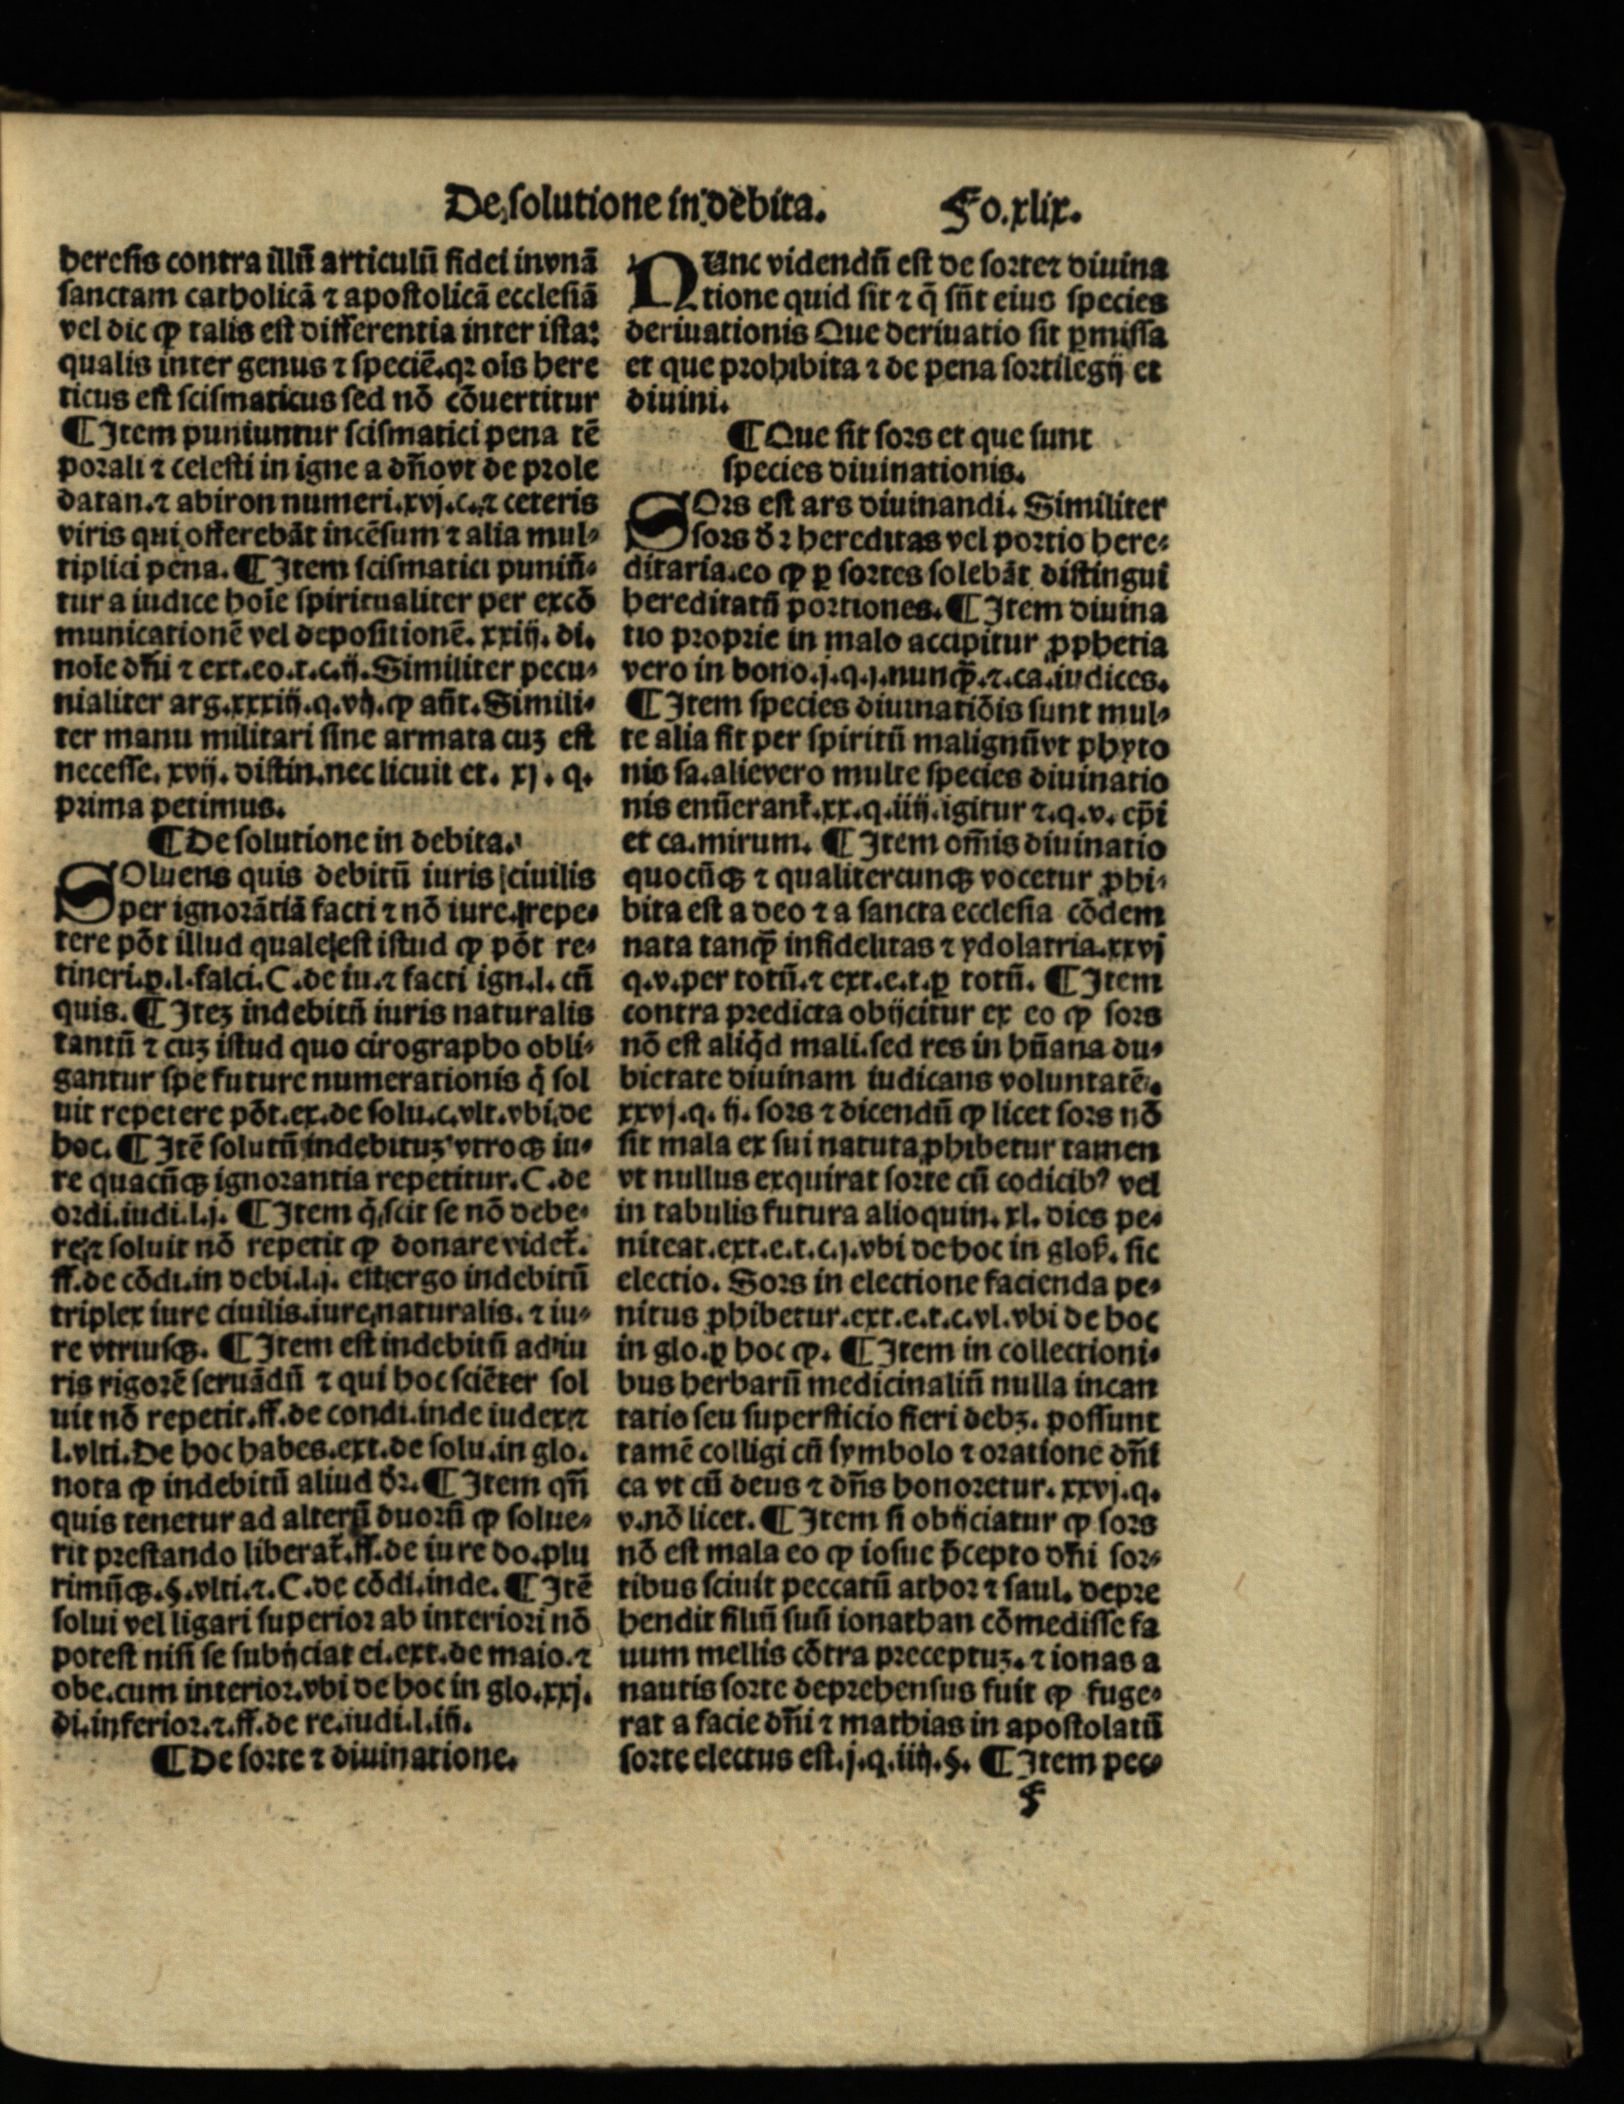 De solutione in debita. Fo.xlix.
heresis contra illū articulū fidei in vnā
sanctam catholicā ⁊ apostolicā ecclesiā
vel dic ꝙ talis est differentia inter ista:
qualis inter genus ⁊ speciē.qꝛ oīs here
ticus est scismaticus sed nō cōuertitur
¶ Item puniuntur scismatici pena tē
porali ⁊ celesti in igne a dño vt de prole
datan.⁊ abiron numeri.xvj.c.⁊ ceteris
viris qui offerebāt incēsum ⁊ alia mul⸗
tiplici pena. ¶ Item scismatici puniū⸗
tur a iudice hoīe spiritualiter per excō
municationē vel depositionē. xxiij. di.
noīe dñi ⁊ ext.eo.t.c.ij. Similiter pecu⸗
nialiter arg.xxxiij.q.vij.ꝙ añt. Simili⸗
ter manu militari sine armata cuꝫ est
necesse. xvij. distin.nec licuit et. xj. q.
prima petimus.
¶ De solutione in debita.
SOluens quis debitū iuris ciuilis
per ignorātiā facti ⁊ nō iure repe⸗
tere pōt illud quale est istud ꝙ pōt re⸗
tineri.ꝑ.l.falci.C.de iu.⁊ facti ign.l. cū
quis. ¶ Iteꝫ indebitū iuris naturalis
tantū ⁊ cuꝫ istud quo cirographo obli⸗
gantur spe future numerationis q̄ sol
uit repetere pōt.ex.de solu.c.vlt.vbi de
hoc. ¶ Itē solutū indebituꝫ vtroqꝫ iu⸗
re quacūqꝫ ignorantia repetitur. C.de
ordi.iudi.l.j. ¶ Item q̄ scit se nō debe⸗
re ⁊ soluit nō repetit ꝙ donare videt̄.
ff.de cōdi.in debi.l.j. est ergo indebitū
triplex iure ciuilis.iure naturalis. ⁊ iu⸗
re vtriusqꝫ. ¶ Item est indebitū ad iu
ris rigorē seruādū ⁊ qui hoc sciēter sol
uit nō repetit.ff.de condi.inde iudex ⁊
l.vlti. De hoc habes.ext.de solu.in glo.
nota ꝙ indebitū aliud dr̄. ¶ Item qñ
quis tenetur ad alterū duorū ꝙ solue⸗
rit prestando liberat̄.ff.de iure do.plu
rimūqꝫ.§.vlti.⁊.C.de cōdi.inde. ¶ Itē
solui vel ligari superior ab interiori nō
potest nisi se subijciat ei.ext.de maio.⁊
obe.cum interior.vbi de hoc in glo.xxj.
di.inferior.⁊.ff.de re.iudi.l.iij.
¶ De sorte ⁊ diuinatione.
NUnc videndū est de sorte ⁊ diuina
tione quid sit ⁊ q̄ sūt eius species
deriuationis Que deriuatio sit ꝑmissa
et que prohibita ⁊ de pena sortilegij et
diuini.
¶ Que sit sors et que sunt
species diuinationis.
SOrs est ars diuinandi. Similiter
sors dr̄ hereditas vel portio here⸗
ditaria.eo ꝙ ꝑ sortes solebāt distingui
hereditatū portiones. ¶ Item diuina
tio proprie in malo accipitur ꝓphetia
vero in bono.j.q.j.nunqꝫ.⁊.ca.iudices.
¶ Item species diuinatiōis sunt mul⸗
te alia fit per spiritū malignū vt phyto
nis sa.alie vero multe species diuinatio
nis enūerant̄.xx.q.iiij.igitur ⁊.q.v. cp̄i
et ca.mirum. ¶ Item om̄is diuinatio
quocūqꝫ ⁊ qualitercunqꝫ vocetur ꝓhi⸗
bita est a deo ⁊ a sancta ecclesia cōdem
nata tanqꝫ infidelitas ⁊ ydolatria.xxvj
q.v.per totū.⁊ ext.e.t.ꝑ totū. ¶ Item
contra predicta obijcitur ex eo ꝙ sors
nō est aliq̄d mali.sed res in hūana du⸗
bietate diuinam iudicans voluntatē.
xxvj.q. ij. sors ⁊ dicendū ꝙ licet sors nō
sit mala ex sui natuta ꝓhibetur tamen
vt nullus exquirat sorte cū codicibꝰ vel
in tabulis futura alioquin. xl. dies pe⸗
niteat.ext.e.t.c.j.vbi de hoc in glos̄. sic
electio. Sors in electione facienda pe⸗
nitus ꝓhibetur.ext.e.t.c.vl.vbi de hoc
in glo.ꝑ hoc ꝙ. ¶ Item in collectioni⸗
bus herbarū medicinaliū nulla incan
tatio seu supersticio fieri debꝫ. possunt
tamē colligi cū symbolo ⁊ oratione dñi
ca vt cū deus ⁊ dñs honoretur. xxvj.q.
v.nō licet. ¶ Item si obijciatur ꝙ sors
nō est mala eo ꝙ iosue p̄cepto dñi sor⸗
tibus sciuit peccatū athor ⁊ saul. depre
hendit filiū suū ionathan cōmedisse fa
uum mellis cōtra preceptuꝫ. ⁊ ionas a
nautis sorte deprehensus fuit ꝙ fuge⸗
rat a facie dñi ⁊ mathias in apostolatū
sorte electus est.j.q.iiij.§. ¶ Item pec⸗